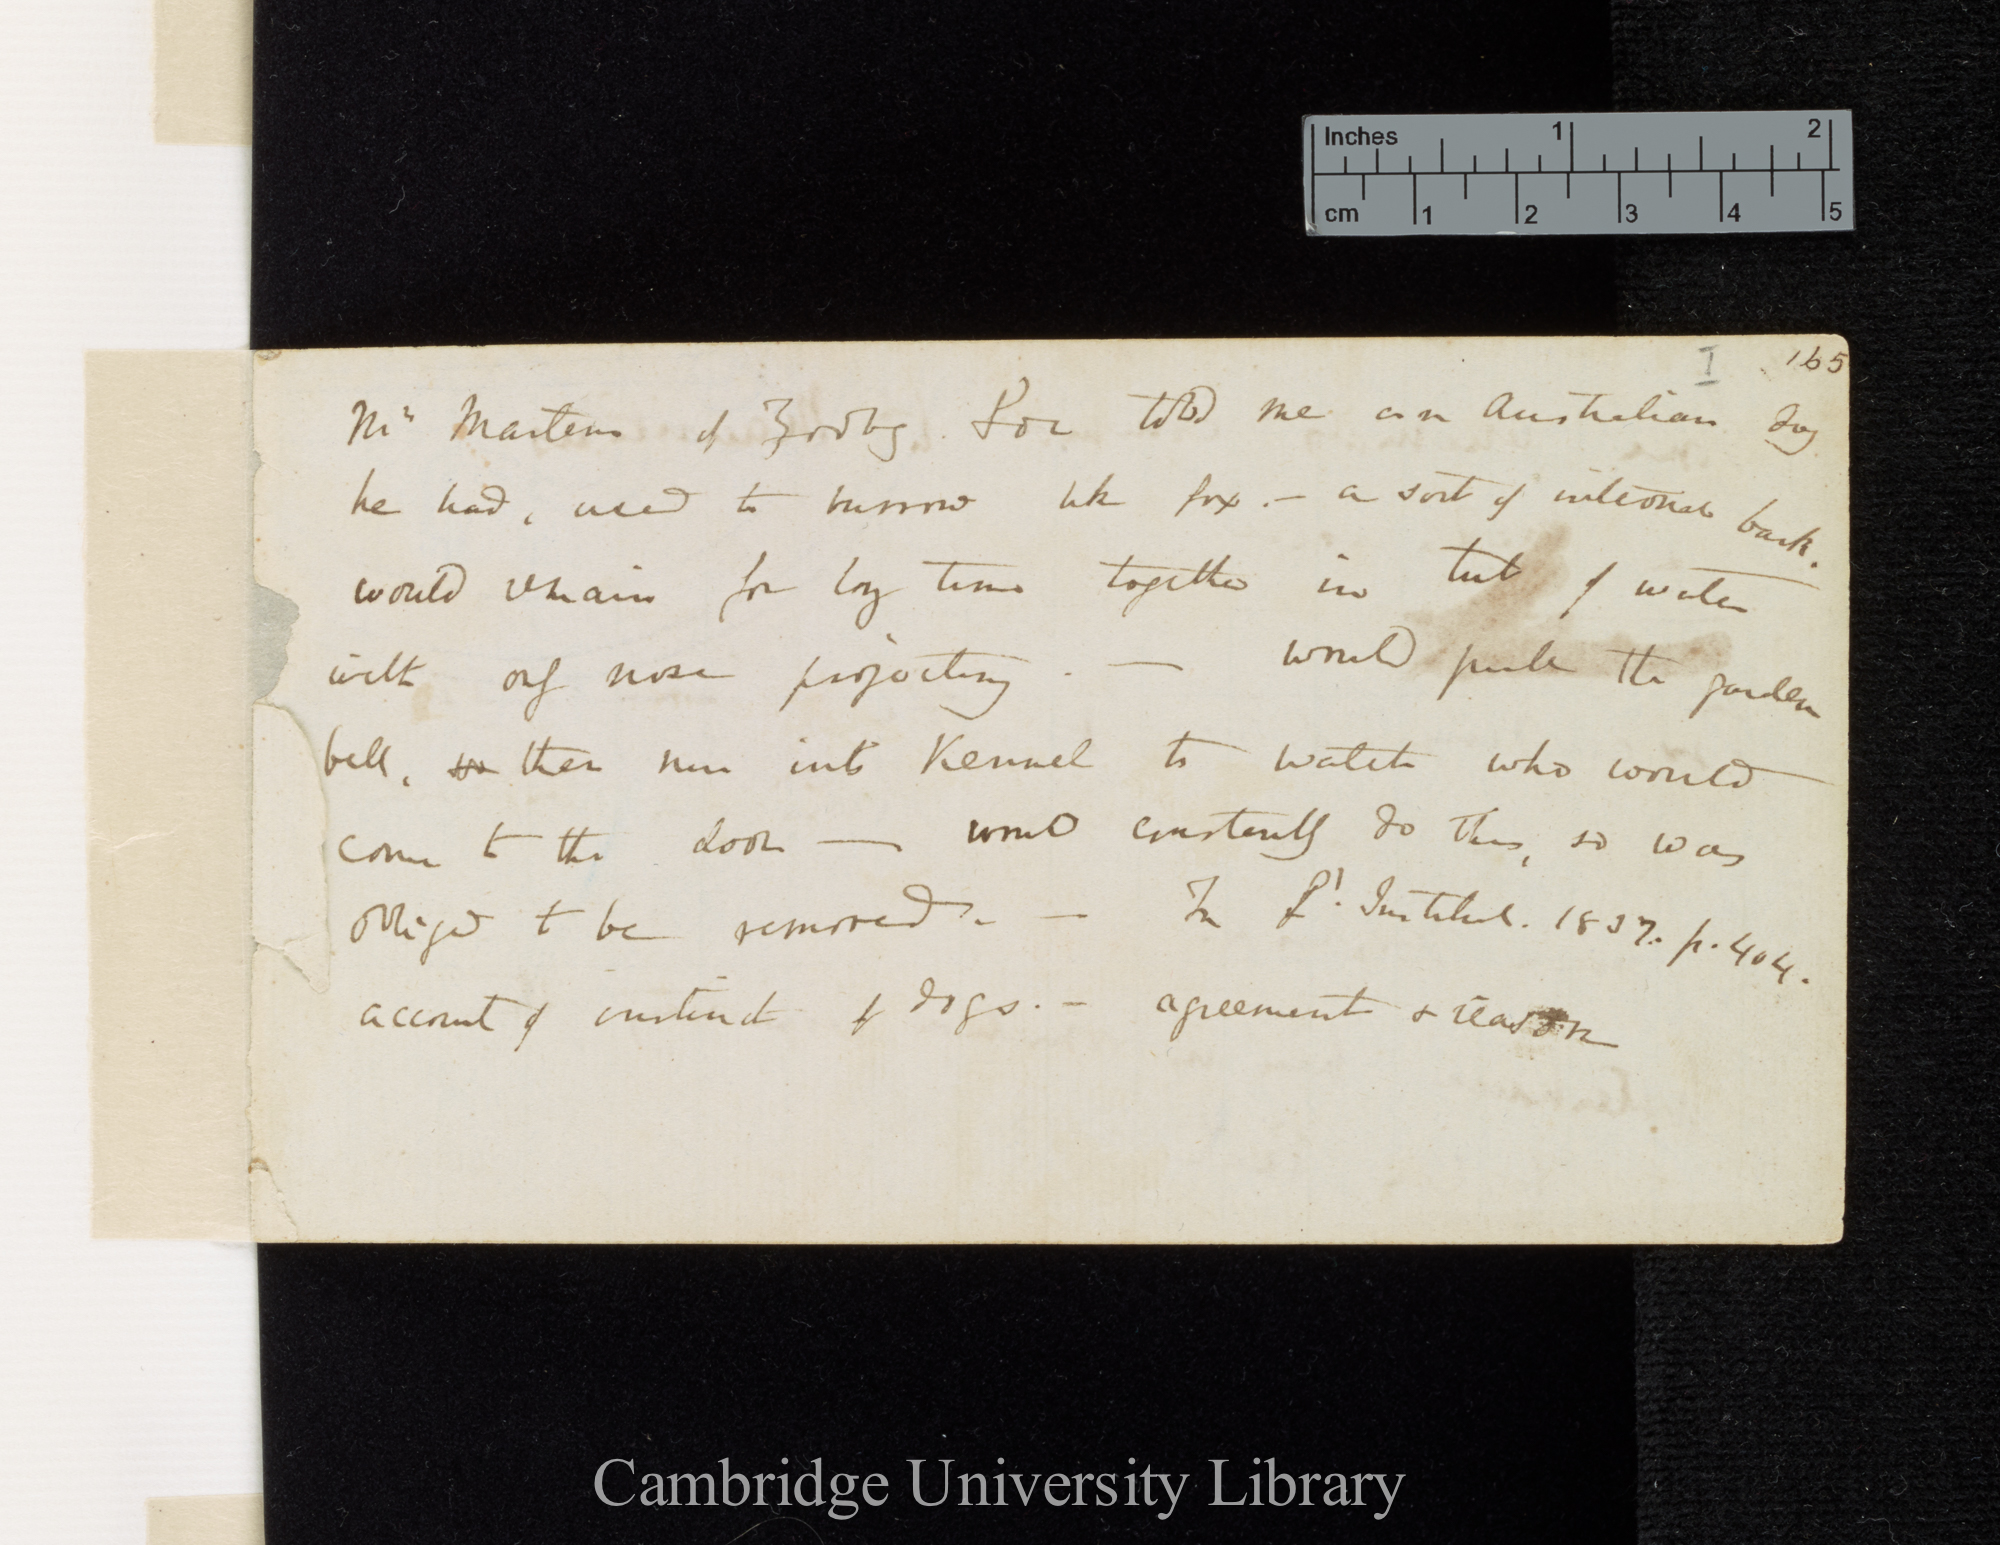 Inches 1 2
cm 1 2 3 4 5
I 165
Mr Martens of Zoolog. Soc told me an Australian dog
he had, used to burrow like fox. — a sort of internal bark.
would remain for long time together in tub of water
with only nose projecting. — would pull the garden
bell, then run into Kennel to watch who would
come to the door — would constantly do this, so was
obliged to be removed. — In L'. Institut. 1837. p. 404.
account of instinct of dogs. — agreement & reason
Cambridge University Library